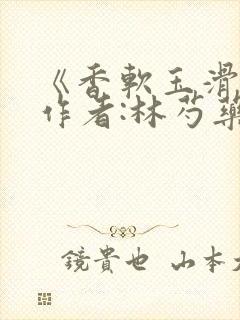 《香軟玉滑
作者:林芍藥
鏡貴也 山本